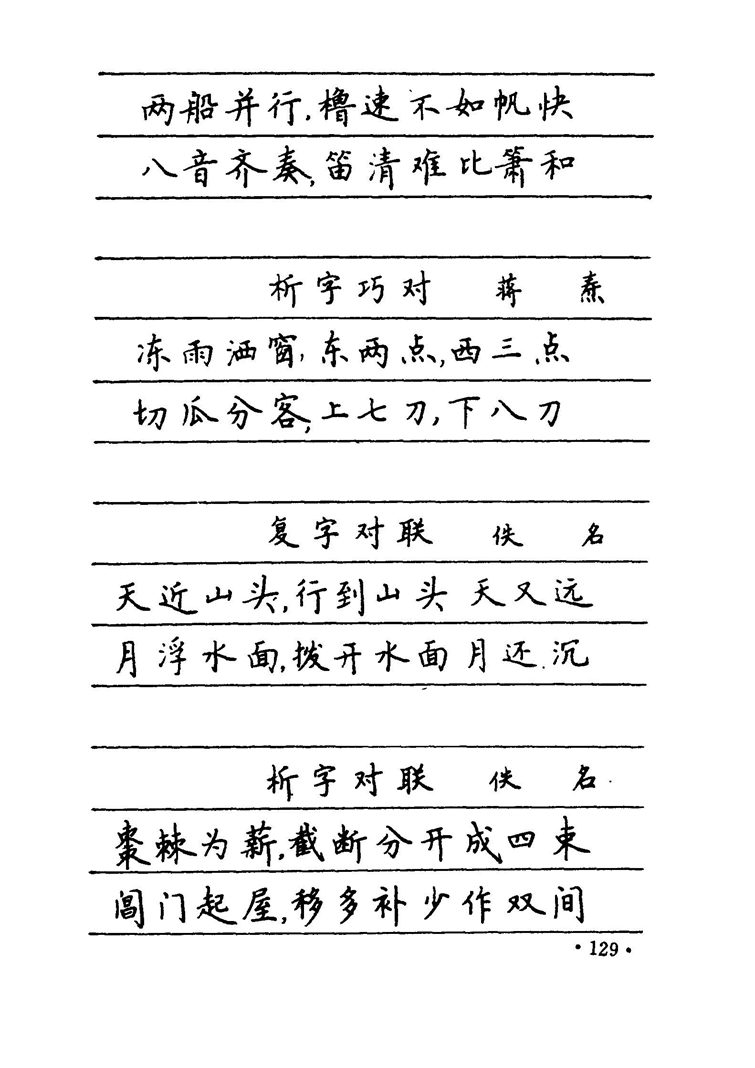 两船并行,橹速不如帆快
八音齐奏,笛清难比箫和
析字巧对 蒋焘
冻雨洒窗,东两点,西三点
切瓜分客,上七刀,下八刀
复字对联 佚名
天近山头,行到山头天又远
月浮水面,拨开水面月还沉
析字对联 佚名
枣棘为薪,截断分开成四束
阊门起屋,移多补少作双间
·129·